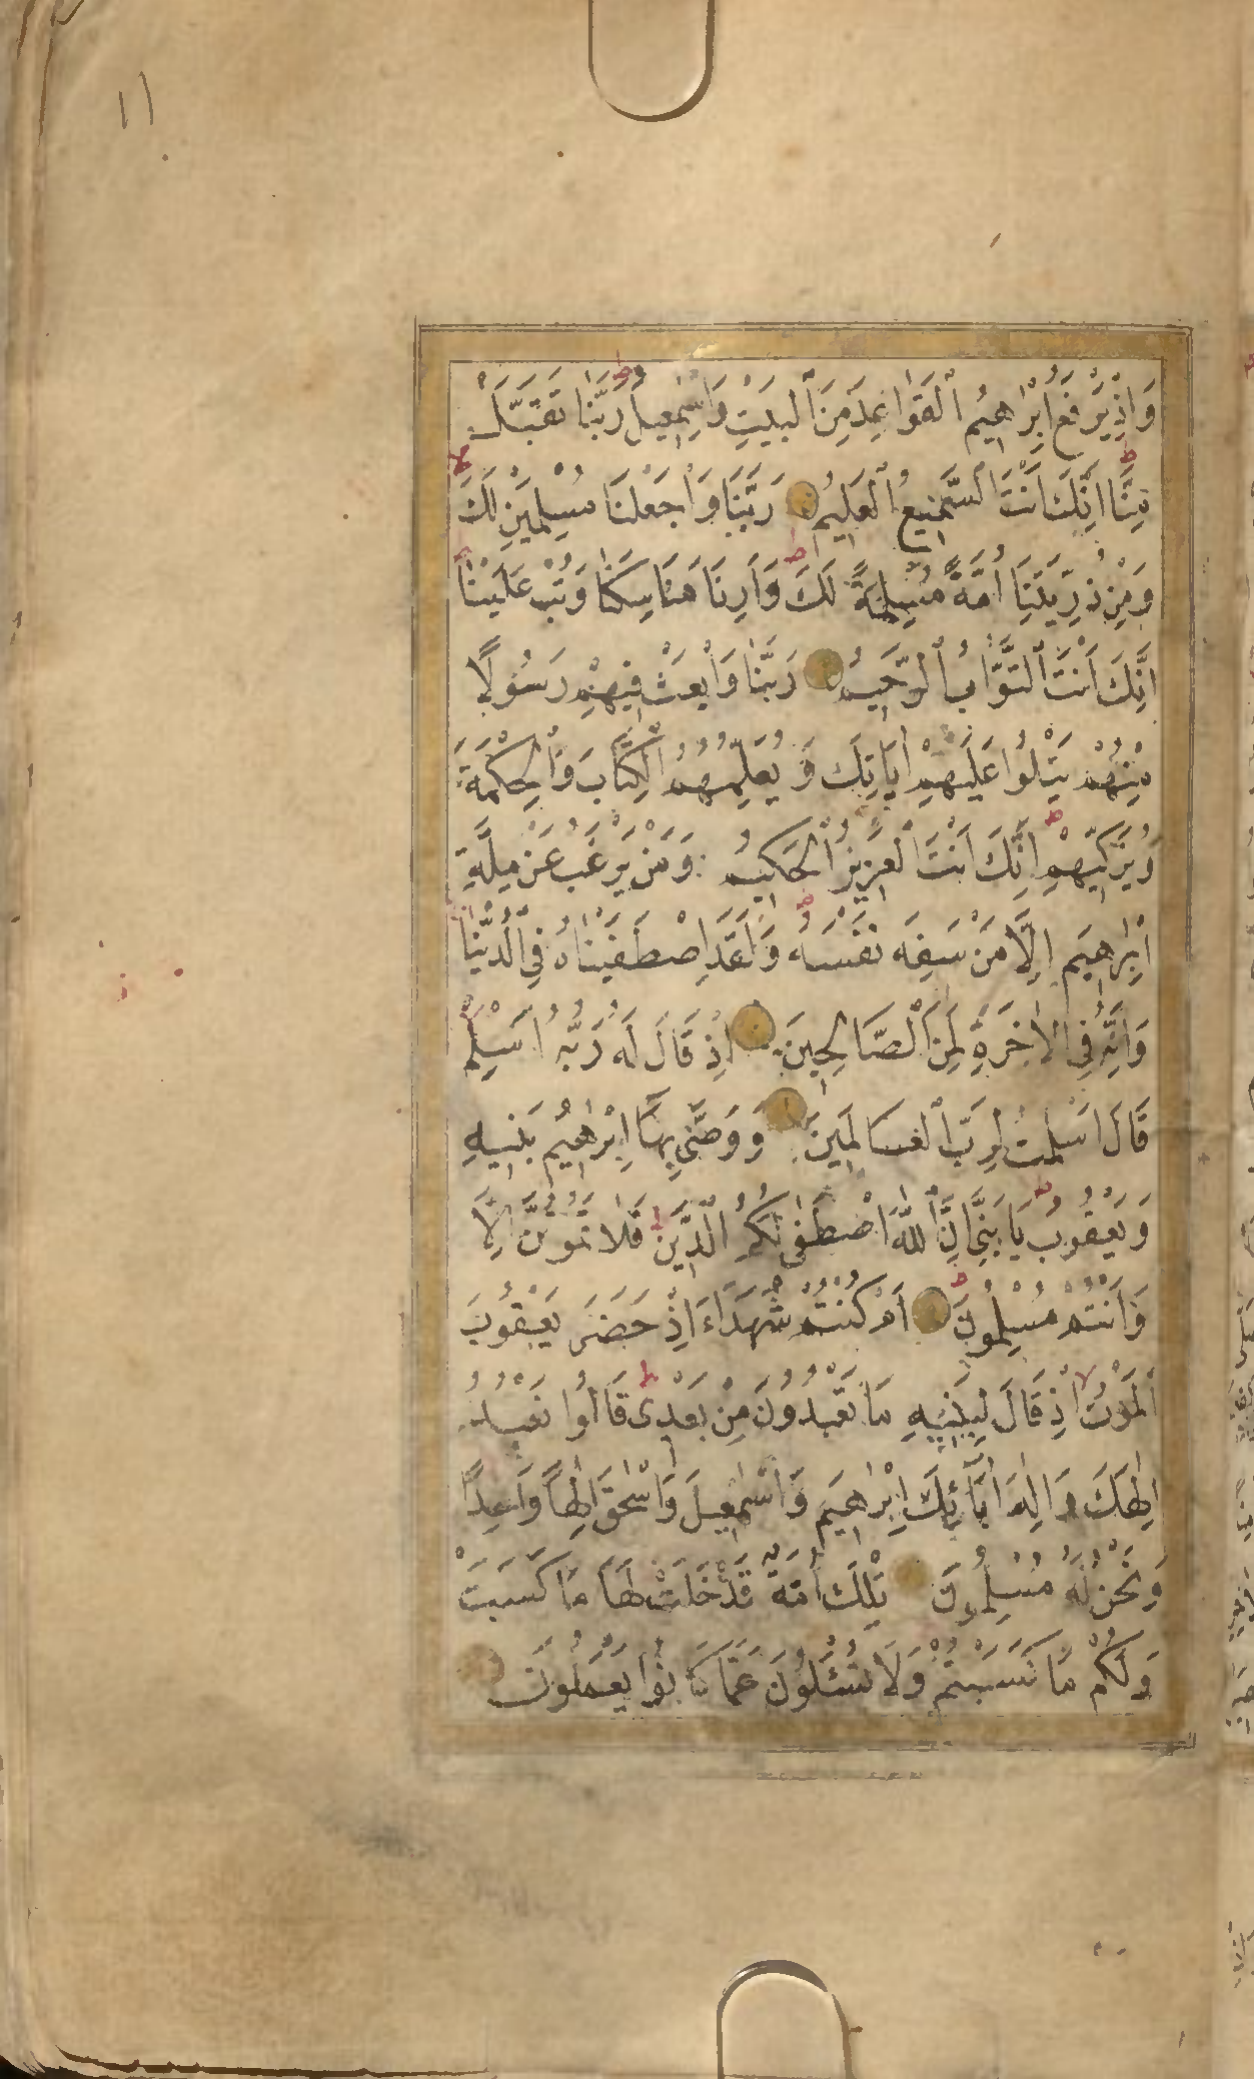 ١١
وَاِذْ يَرْفَعُ اِبْرٰاهِيمُ الْقَوٰاعِدَ مِنَ الْبَيْتِ وَاِسْمٰعِيلُ رَبَّنٰا تَقَبَّلْ
مِنَّا اِنَّكَ اَنْتَ السَّمِيعُ الْعَلِيمُ رَبَّنَا وَاجْعَلْنَا مُسْلِمَيْنِ لَكَ
وَمِنْ ذُرِّيَّتِنَا اُمَّةً مُسْلِمَةً لَكَ وَاَرِنَا مَنَاسِكَنٰا وَتُبْ عَلَيْنٰا
اِنَّكَ اَنْتَ التَّوَّابُ الرَّحِيمُ رَبَّنٰا وَابْعَثْ فِيهِمْ رَسُولًا
مِنْهُمْ يَتْلُوا عَلَيْهِمْ اٰيَاتِكَ وَيُعَلِّمُهُمُ الْكِتَابَ وَالْحِكْمَةَ
وَيُزَكِّيهِمْ اِنَّكَ اَنْتَ الْعَزِيزُ الْحَكِيمُ وَمَنْ يَرْغَبُ عَنْ مِلَّةِ
اِبْرٰهِيمَ اِلَّا مَنْ سَفِهَ نَفْسَهُ وَلَقَدِ اصْطَفَيْنَاهُ فِي الدُّنْيٰا
وَاِنَّهُ فِي الْاٰخِرَةِ لَمِنَ الصَّالِحِينَ اِذْ قَالَ لَهُ رَبُّهُ اَسْلِمْ
قَالَ اَسْلَمْتُ لِرَبِّ الْعَالَمِينَ وَوَصّٰى بِهَا اِبْرٰهِيمُ بَنِيهِ
وَيَعْقُوبُ يَا بَنِيَّ اِنَّ اللّٰهَ اصْطَفٰى لَكُمُ الدِّينَ فَلَا تَمُوتُنَّ اِلَّا
وَاَنْتُمْ مُسْلِمُونَ اَمْ كُنْتُمْ شُهَدَاءَ اِذْ حَضَرَ يَعْقُوبَ
الْمَوْتُ اِذْ قَالَ لِبَنِيهِ مَا تَعْبُدُونَ مِنْ بَعْدِى قَالُوا نَعْبُدُ
اِلٰهَكَ وَاِلٰهَ اٰبَائِكَ اِبْرٰهِيمَ وَاِسْمٰعِيلَ وَاِسْحٰقَ اِلٰهًا وَاحِدًا
وَنَحْنُ لَهُ مُسْلِمُونَ تِلْكَ اُمَّةٌ قَدْ خَلَتْ لَهَا مَا كَسَبَتْ
وَلَكُمْ مَا كَسَبْتُمْ وَلَا تُسْئَلُونَ عَمَّا كَانُوا يَعْمَلُونَ